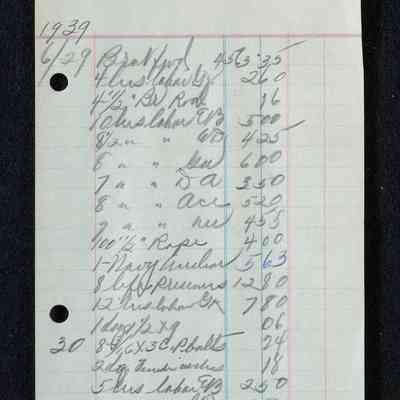 1939
6/29 Brot fwd 4563 35
4 hrs labor Gr 2 60
4 1/2" Br Rod 16
10 hrs labor EB 5 00
8 1/2 " " WD 4 25
6 " " Geo 6 00
7 " " DA 3 50
8 " " Ace 5 20
7 " " 4 55
100' 1/2" Rope 4 00
1-Navy Anchor 5 63
8 life preservers 12 80
12 hrs labor Gr 7 80
1 doz 1/2 x 9 06
30 8-5/16 x 3 C.P. bolts 24
2 doz washers 18
5 hrs labor EB 2 50